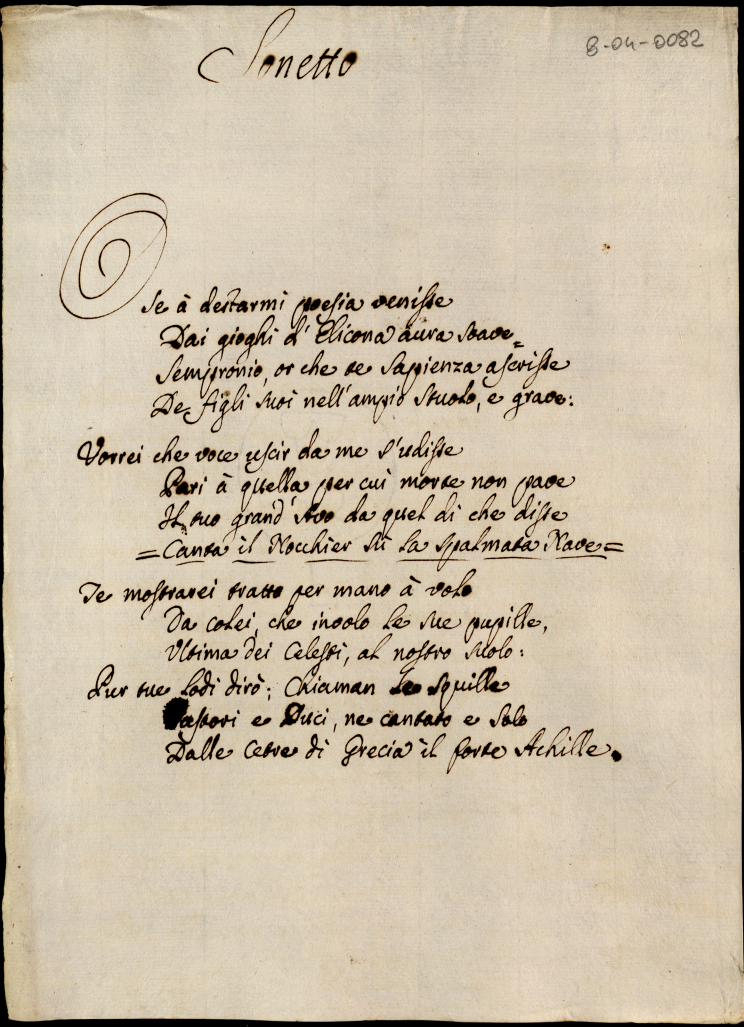 Sonetto
8-04-0082
Se à destarmi poesia venisse
Dai gioghi d'Elicona aura soave,
Sempronio, or che te Sapienza ascrisse
De figli suoi nell'ampio stuolo, e grave:
Vorrei che voce uscir da me s'udisse
Pari à quella per cui morte non pave
Il tuo grand'Avo da quel di che disse
=Canta il Nocchier sù la spalmata Nave=
Te mostrarei tratto per mano à volo
Da colei, che involo le sue pupille,
Ultima dei Celesti, al nostro suolo:
Pur tue lodi dirò; Chiaman le Squille
Pastori e Duci, ne cantato e solo
Dalle Cetre di Grecia il forte Achille.